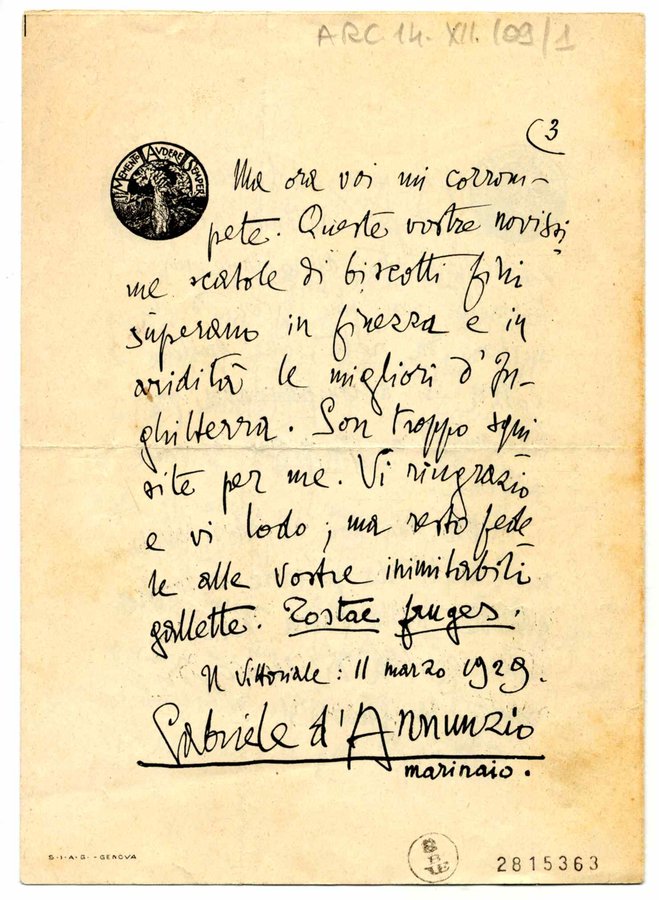 ARC 14. XII. /09/1
(3
MEMENTO AVDERE SEMPER
Ma ora voi mi corrom-
pete. Queste vostre novissi
me scatole di biscotti fini
superano in finezza e in
aridità le migliori d'In-
ghilterra. Son troppo squi
site per me. Vi ringrazio
e vi lodo; ma resto fede
le alle vostre inimitabili
gallette. Tostae fruges.
Il Vittoriale: 11 marzo 1929.
Gabriele d'Annunzio
marinaio.
S.I.A.G. - GENOVA
2815363